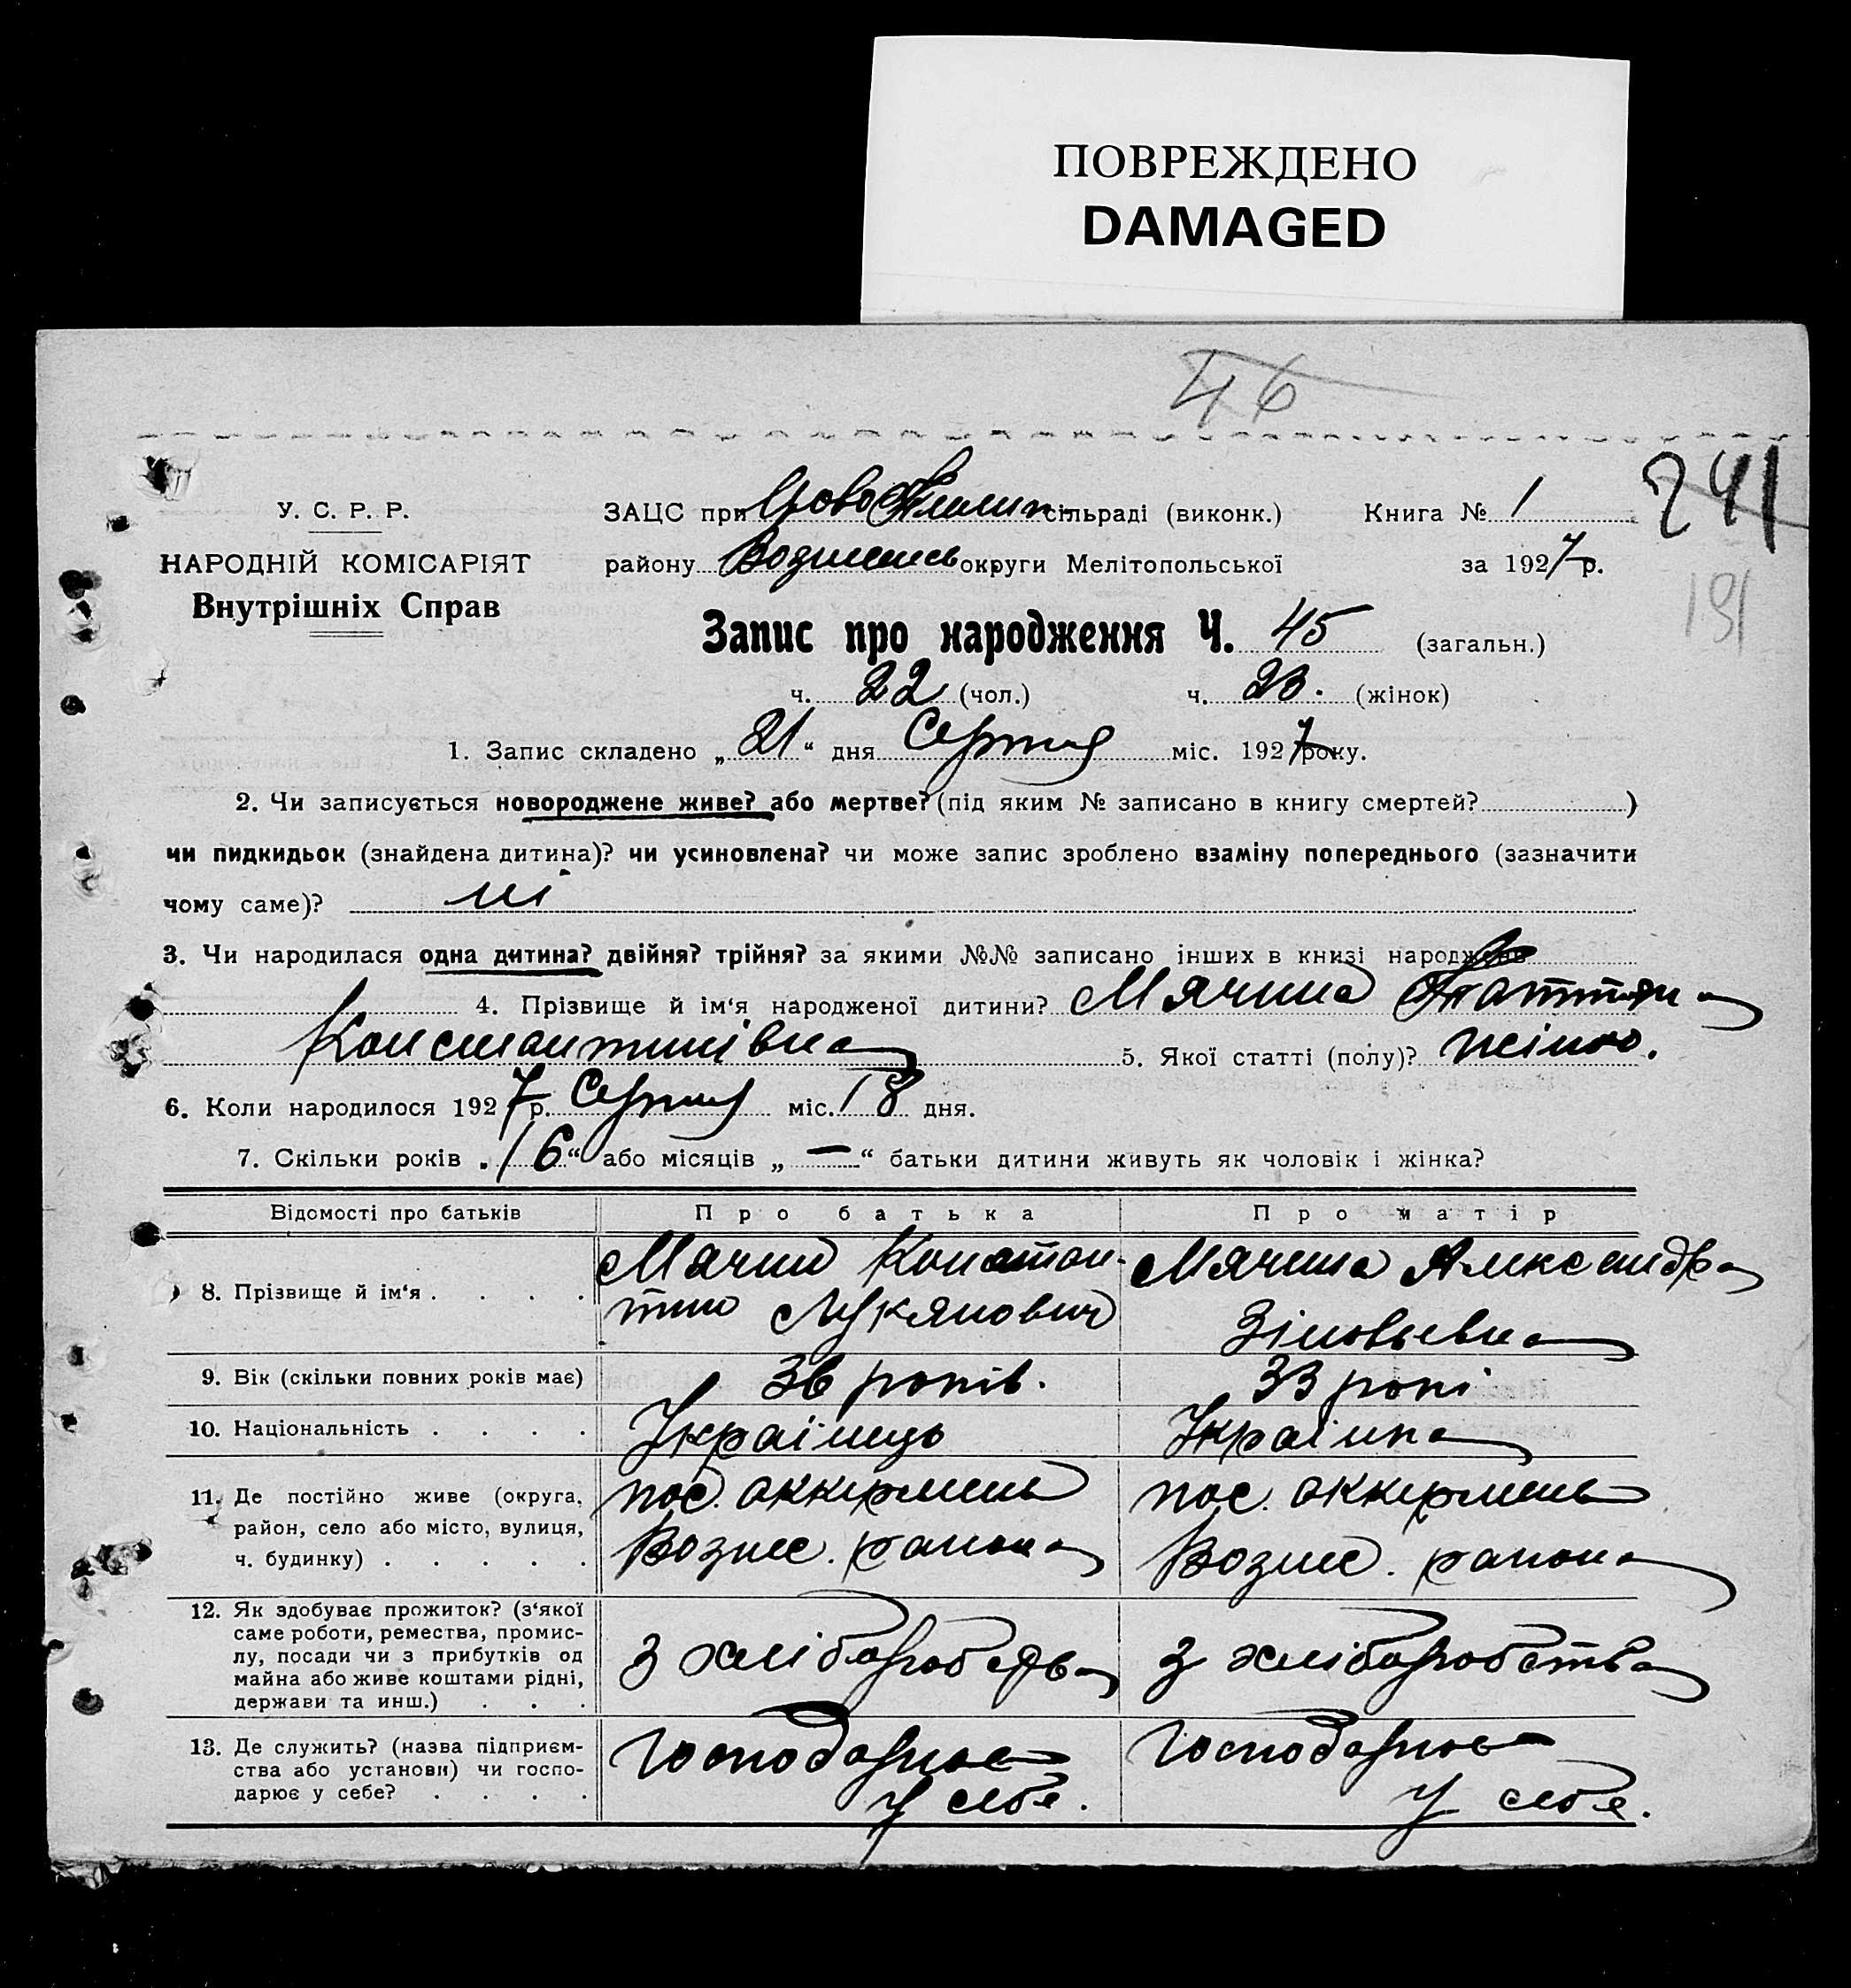 ПОВРЕЖДЕНО
DAMAGED
46
241
191
У. С. Р. Р.
НАРОДНІЙ КОМІСАРІЯТ
Внутрішніх Справ
ЗАЦС при Ново сільраді (виконк.) Книга № 1
району Вознесенсь округи Мелітопольської за 1927 р.
Запис про народження Ч. 45 (загальн.)
ч. 22 (чол.) ч. 23. (жінок)
1. Запис складено „21“ дня Серпня міс. 1927 року.
2. Чи записується новороджене живе? або мертве? (під яким № записано в книгу смертей? )
чи пидкидьок (знайдена дитина)? чи усиновлена? чи може запис зроблено взаміну попереднього (зазначити
чому саме)? ні
3. Чи народилася одна дитина? двійня? трійня? за якими №№ записано інших в книзі народжень
4. Прізвище й ім‘я народженої дитини? Мячина Таттяна
Константинівна 5. Якої статті (полу)? жіно.
6. Коли народилося 1927 р. Серпня міс. 18 дня.
7. Скільки років „16“ або місяців „—“ батьки дитини живуть як чоловік і жінка?
Відомості про батьків Про батька Про матір
8. Прізвище й ім‘я . . . .
Мячин Констан-
тин Лукянович
Мячина Александра
Зіновьевна
9. Вік (скільки повних років має) 36 років. 33 рокі
10. Національність . . . . Українець Українка
11. Де постійно живе (округа,
район, село або місто, вулиця,
ч. будинку) . . . . .
пос. Аккермень
Вознес. района
пос. Аккермень
Вознес. района
12. Як здобуває прожиток? (з‘якої
саме роботи, ремества, промис-
лу, посади чи з прибутків од
майна або живе коштами рідні,
держави та инш.) . . .
З хліборобства
З хліборобства
13. Де служить? (назва підприєм-
ства або установи) чи госпо-
дарює у себе? . . . .
Господарює
у себе.
Господарює
у себе.